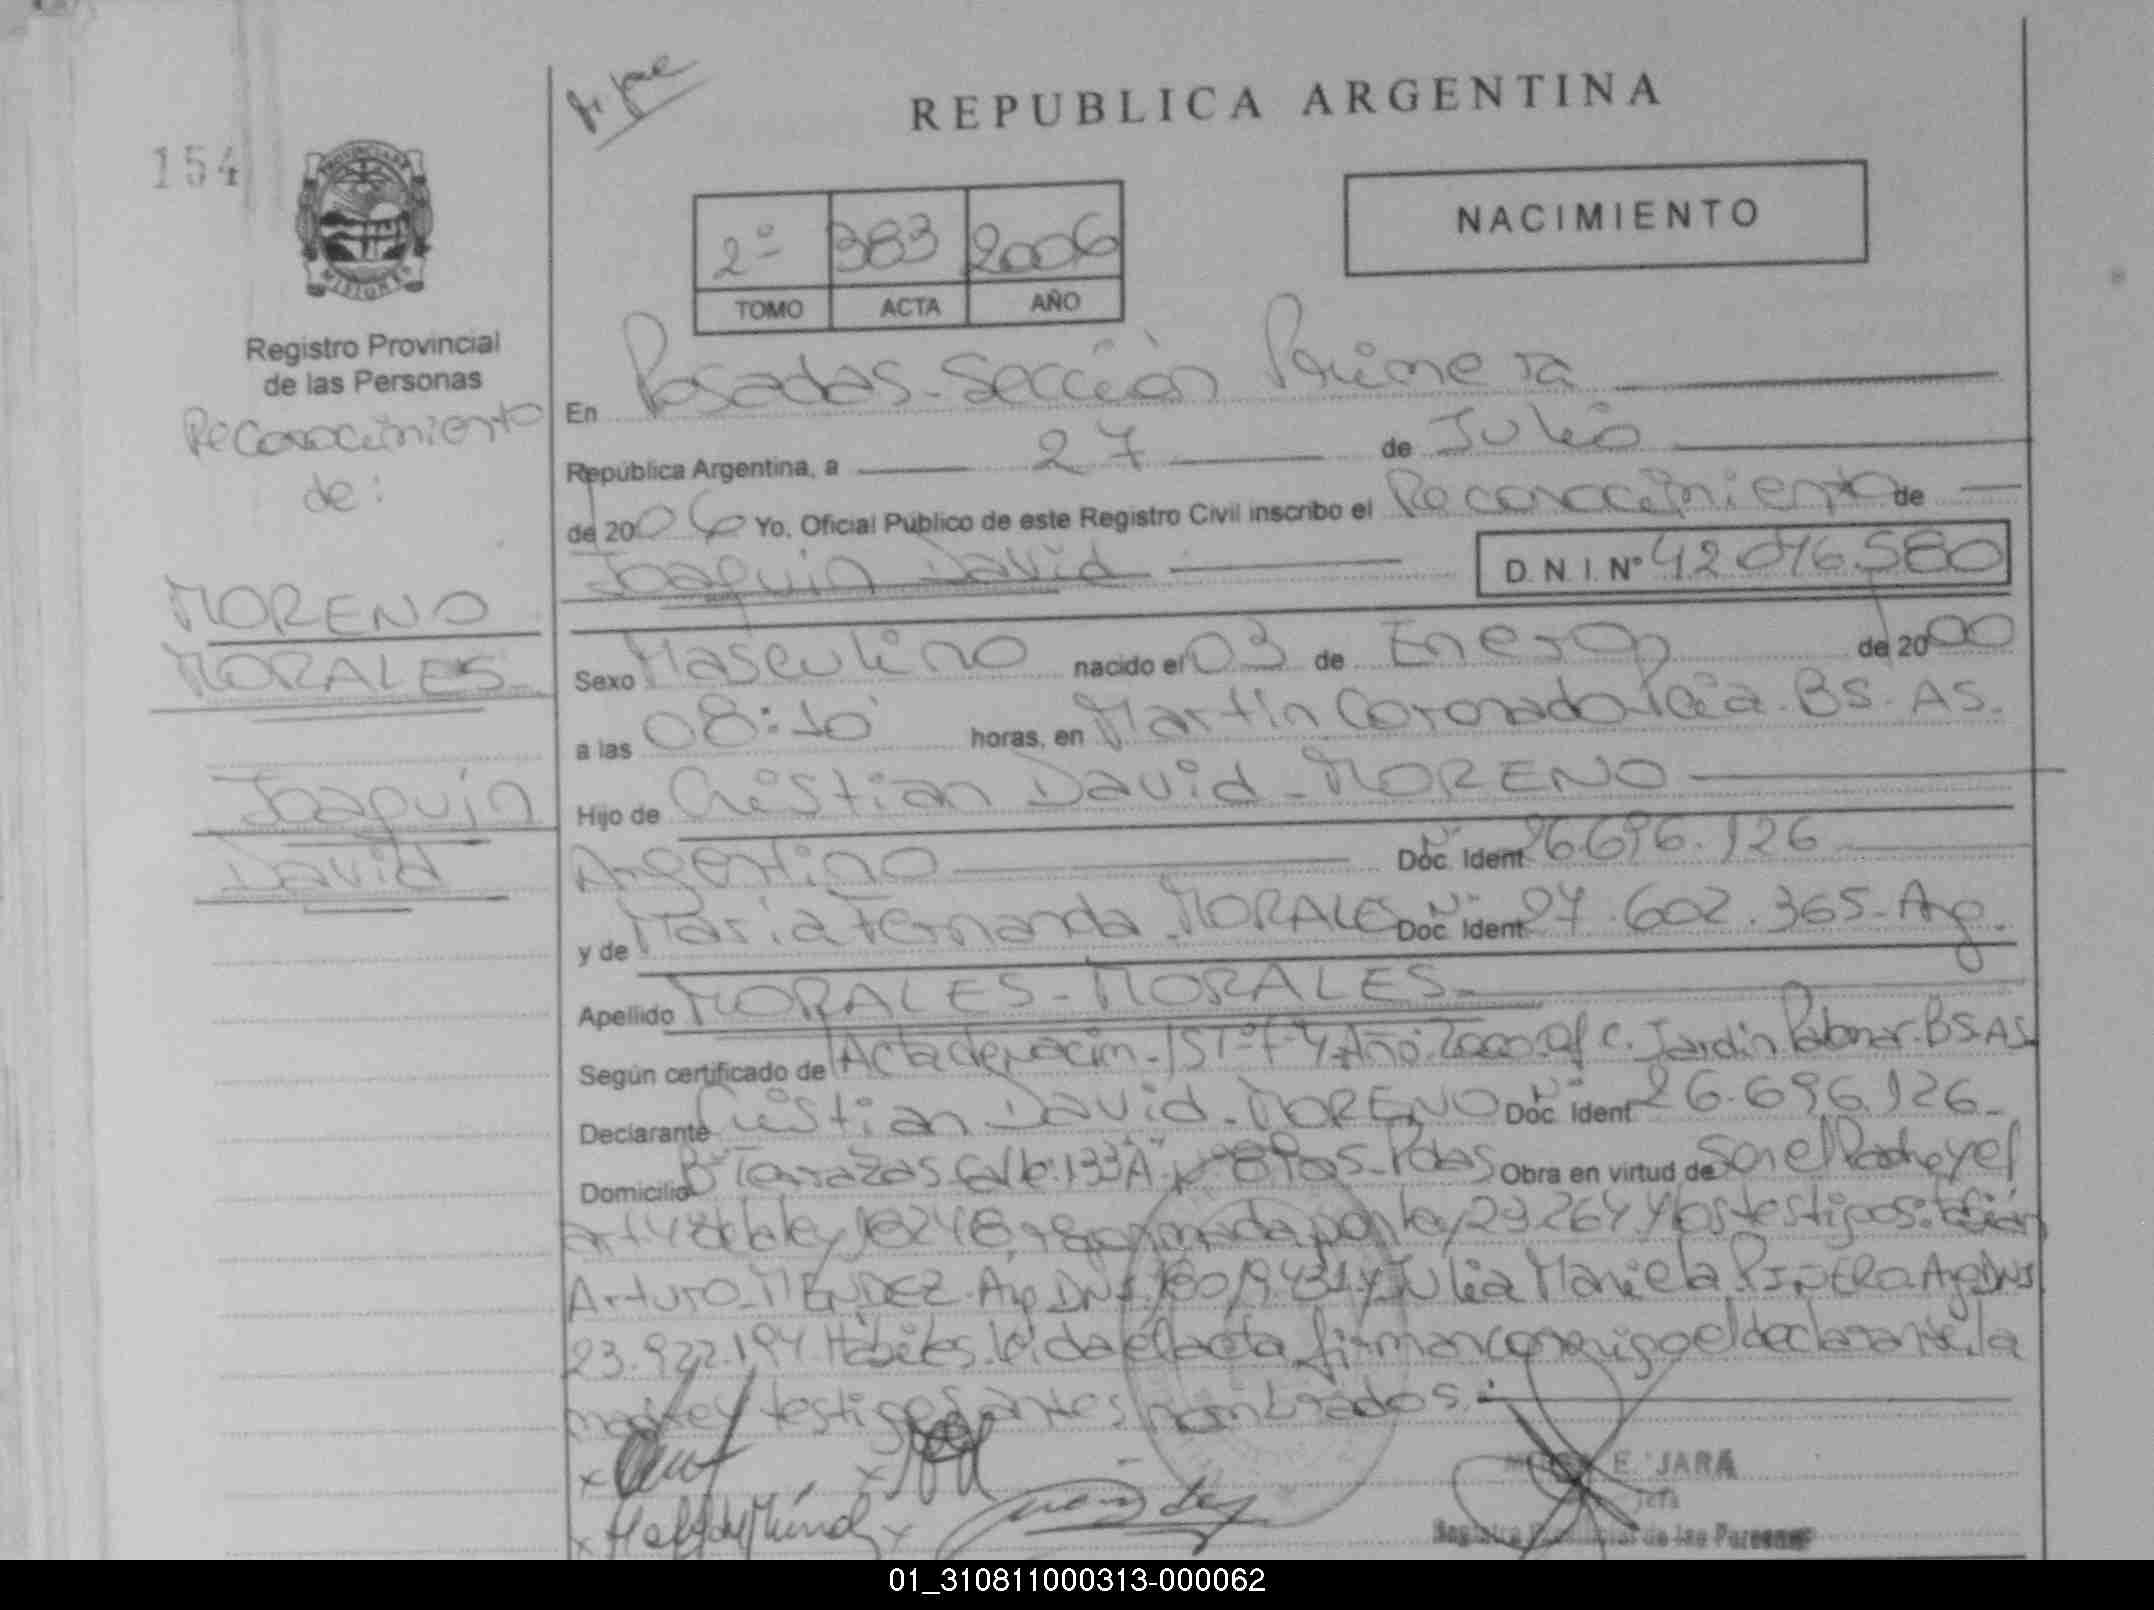 REPUBLICA ARGENTINA
154
PROVINCIA DE
MISIONES
NACIMIENTO
2º 383 2006
TOMO ACTA AÑO
Registro Provincial
de las Personas
Reconocimiento
de:
MORENO
MORALES
Joaquin
David
En Posadas - Sección Primera
República Argentina, a 27 de Julio
de 2006 Yo, Oficial Público de este Registro Civil inscribo el Reconocimiento de
Joaquin David D.N.I. Nº 42.076.580
Sexo Masculino nacido el 03 de Enero de 2000
a las 08:10 horas, en Martin Coronado Pcia. BS. AS.
Hijo de Cristian David - MORENO
Argentino Doc. Ident. Nº 26.696.126
y de Maria Fernanda - MORALES Doc. Ident. Nº 27.602.365 - Arg.
Apellido MORALES - MORALES -
Según certificado de Acta de nacim. Año: 2000. Of. C. Jardin Palomar. BS.AS.
Declarante Cristian David - MORENO Doc. Ident. Nº 26.696.126 -
Domicilio Bº Terrazas Calle 133 A Pdas Obra en virtud de Ser el Padre y el
art 4º de la ley 18248 reformada por ley 23.264 y los testigos:
Arturo - MENDEZ - Arg DNI y Julia Mariela Arg DNI
23.922.194 Hábiles. leída el acta firman conmigo el declarante, la
madre y testigos antes nombrados.
E. JARA
Jefa
Registro Provincial de las Personas
01_310811000313-000062